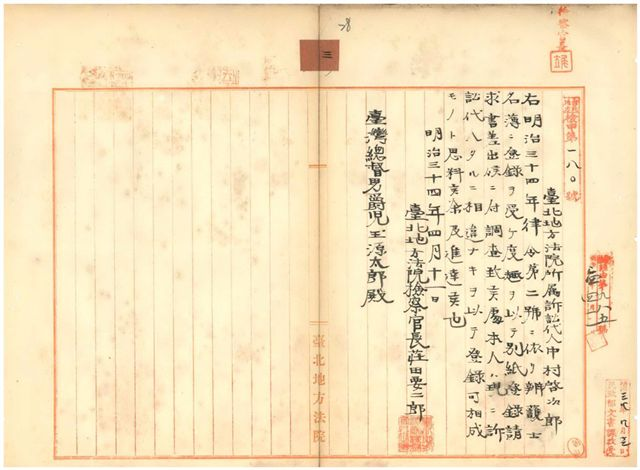 78
三
檢甲第一八〇號
臺北地方法院所属訴訟代人中村啓次郎
右明治三十四年律令第二號ニ依リ辨護士
名簿ニ登録ヲ受ケ度趣ヲ以テ別紙登録請
求書差出候ニ付調査致候處本人ハ現ニ訴
訟代人タルニ相違ナキヲ以テ登録可相成
モノト思料候条及進達候也
明治三十四年四月十一日
臺北地方法院檢察官長荘田要二郎
臺灣総督男爵児玉源太郎殿
臺北地方法院